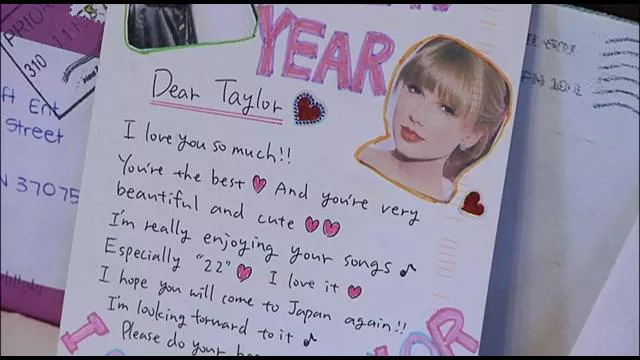 YEAR
Dear Taylor
I love you so much!!
You're the best And you're very
beautiful and cute
I'm really enjoying your songs ♪
Especially "22" I love it
I hope you will come to Japan again!!
I'm looking forward to it ♪
Please do your
PRIO
310
ft Ent
Street
N 37075
I
OR